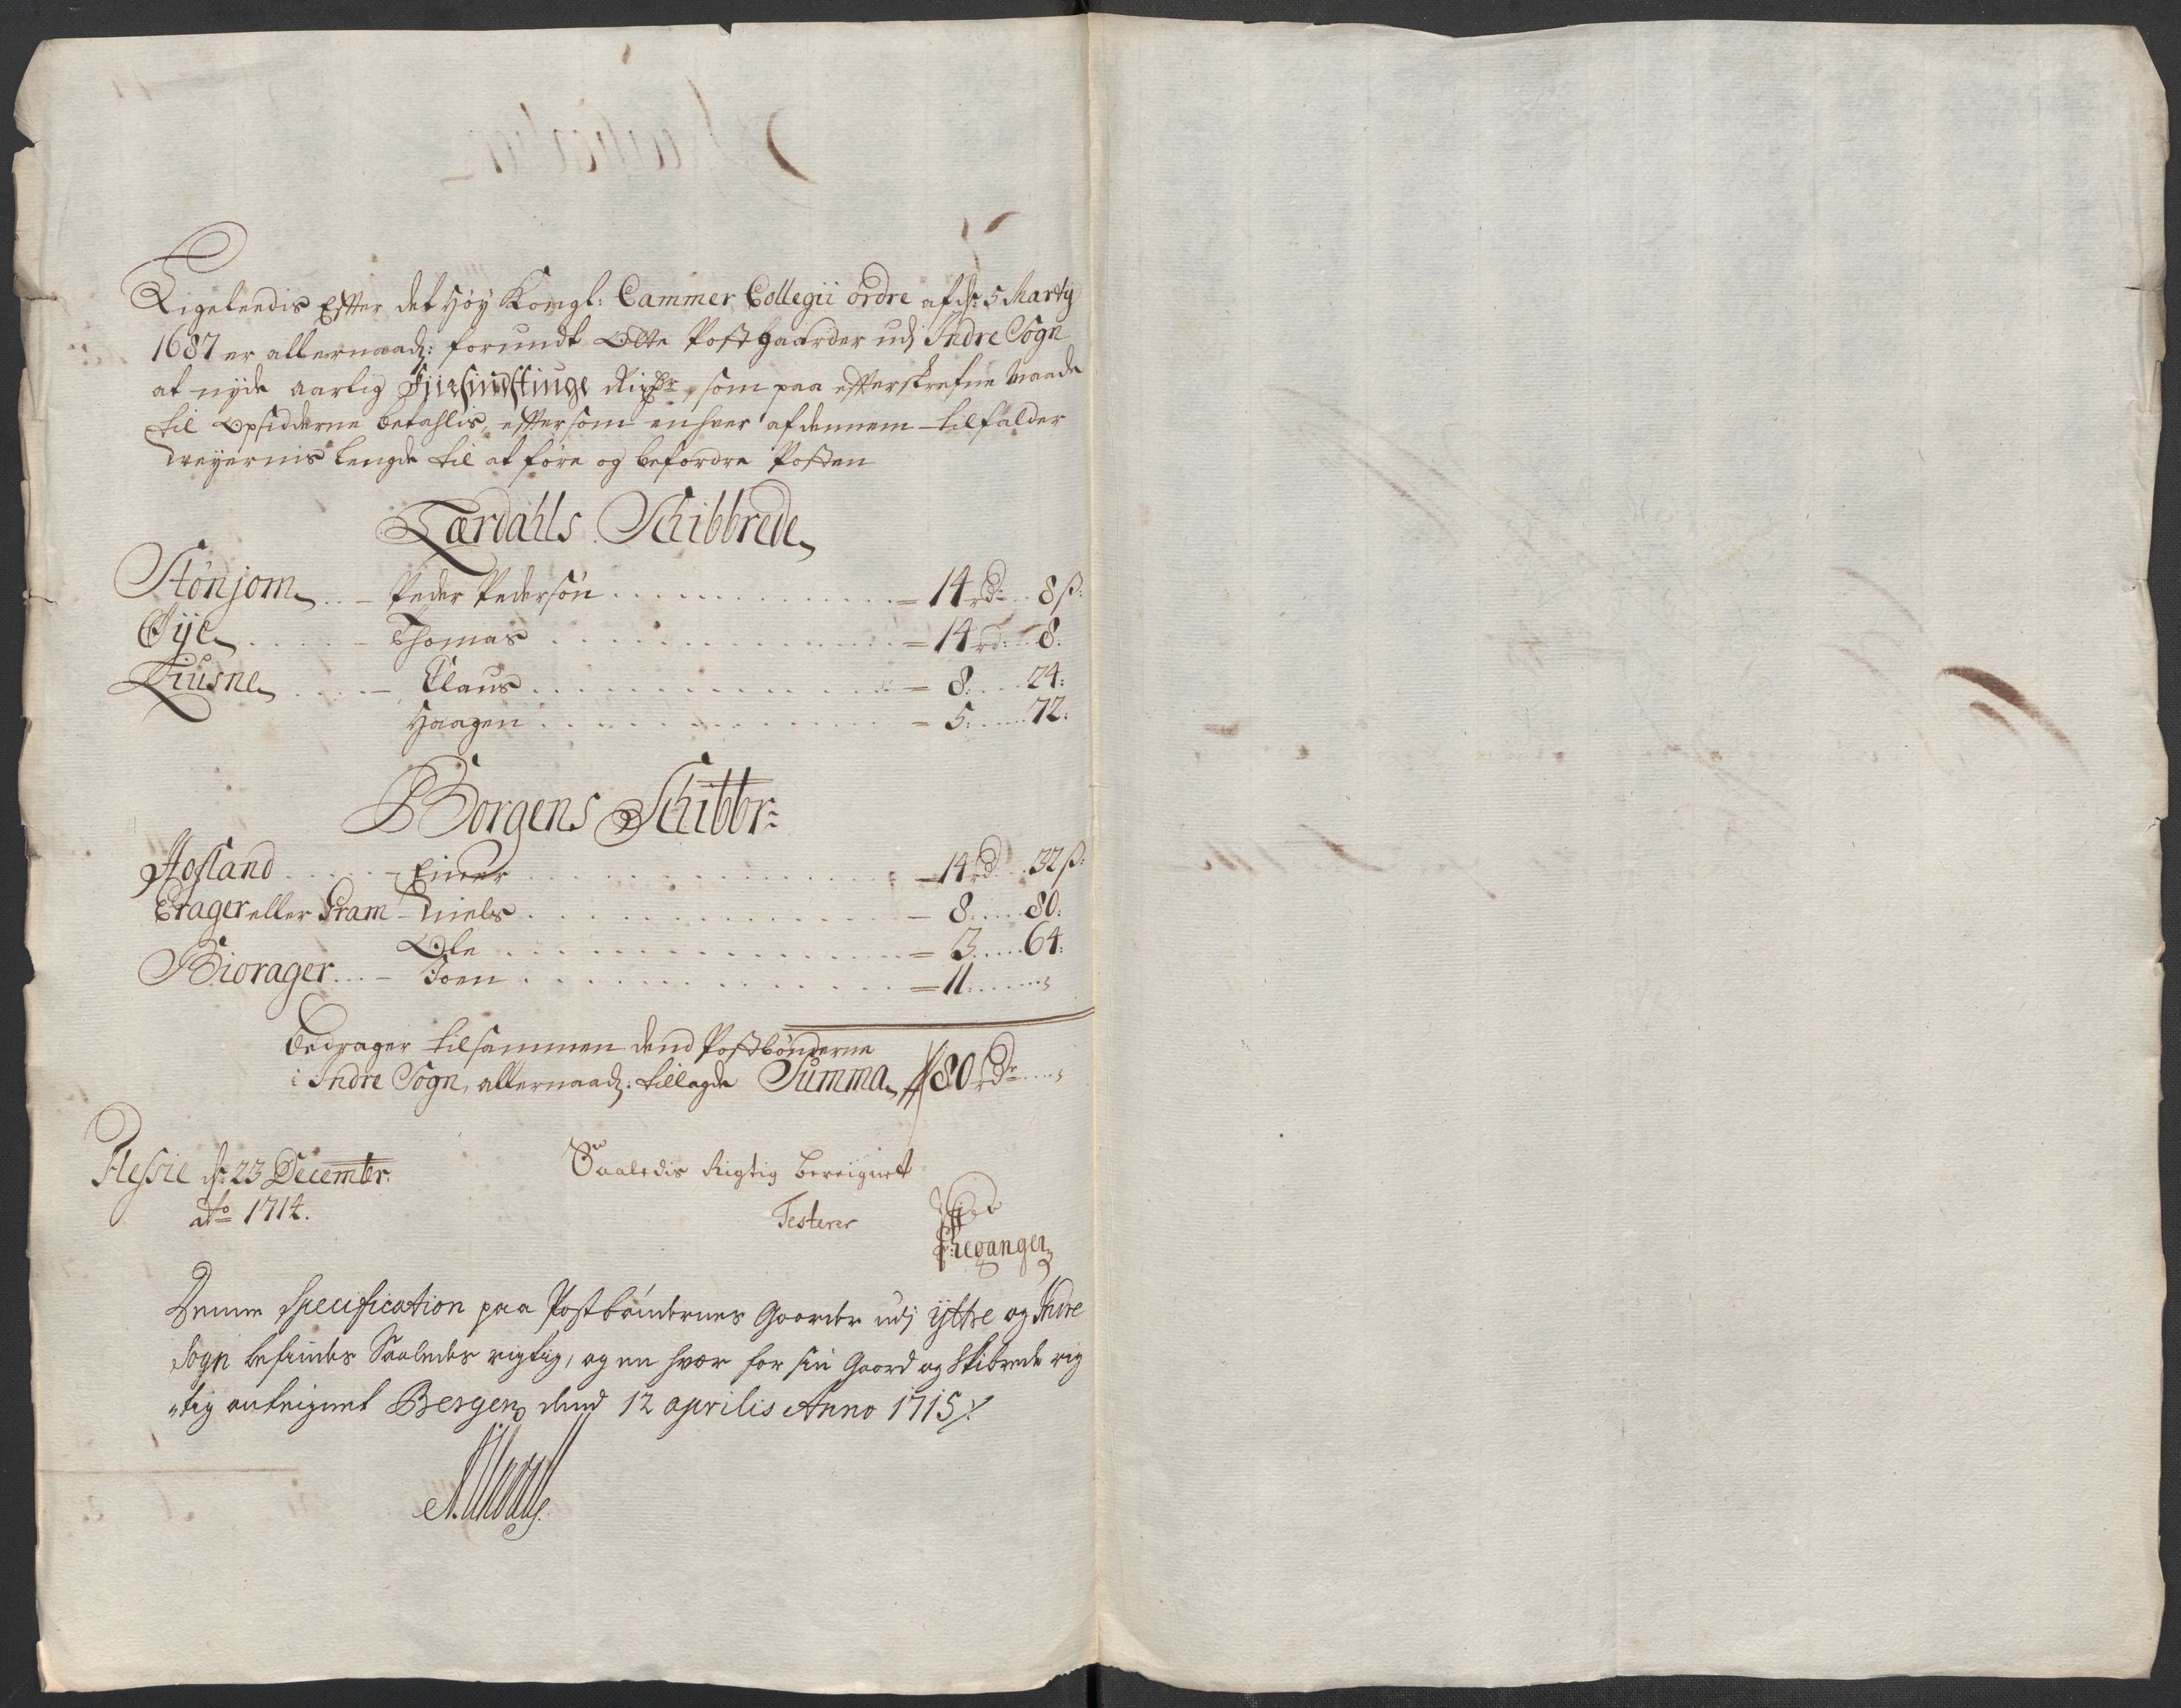 Ligeleedis Efter det Høy Kongl: Cammer Collegii ordre af d: 5 Marty
1687 er allernaad: forundt Otte Postgaarder udj Indre Sogn
at nyde aarlig Fiirsindstiuge Rixdr, som paa efterskrefne Maade
til Opsidderne betahlis, eftersom enhver af dennem tilfalder
Weyernis lengde til at føre og befordre Posten
Lærdahls Schibbrede
Stønjom - Peder Pedersøn - 14 rdr 8 ß:
Øye - Thomas - 14 rd: 8:
Liusne - Claus - 8: 24:
Haagen - 5: 72:
Borgens Schibbr:
Hofland - Einer - 14 rd 32 ß:
Erager eller Gram - Niels - 8: 80:
Ole - 3: 64:
Biorager - Joen - 11:
Bedrager tilsammen dend Postbønderne
i Indre Sogn, allernaad: tillagde Summa 80 rdr
Flessie d: 23 Decembr:
Ao 1714.
Saaledis Rigtig bereignet
Testerer
Denne Specification paa Postbøndernes Gaarder udj yttre og Indre
Sogn befindes Saaledes rigtig, og en hver for sin Gaard og Skibrede rig
"tig anteignet Bergen dend 12 aprilis Anno 1715